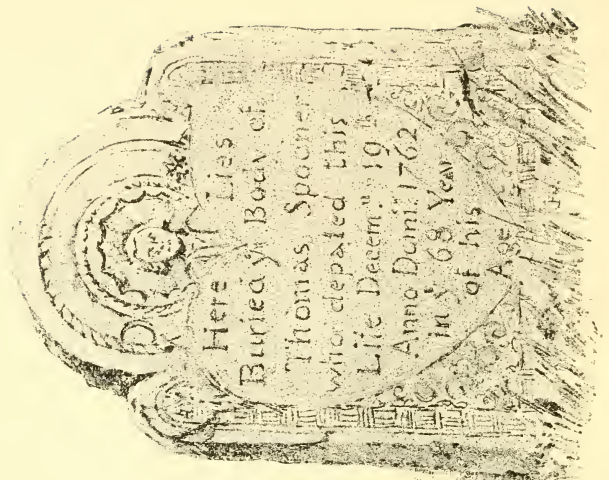 Here Lies
Buried yͤ Body of
Thomas Spooner
who depated this
Life Decemͬ 19
Anno Domi: 1762
in yͤ 68 Year
of his
Age